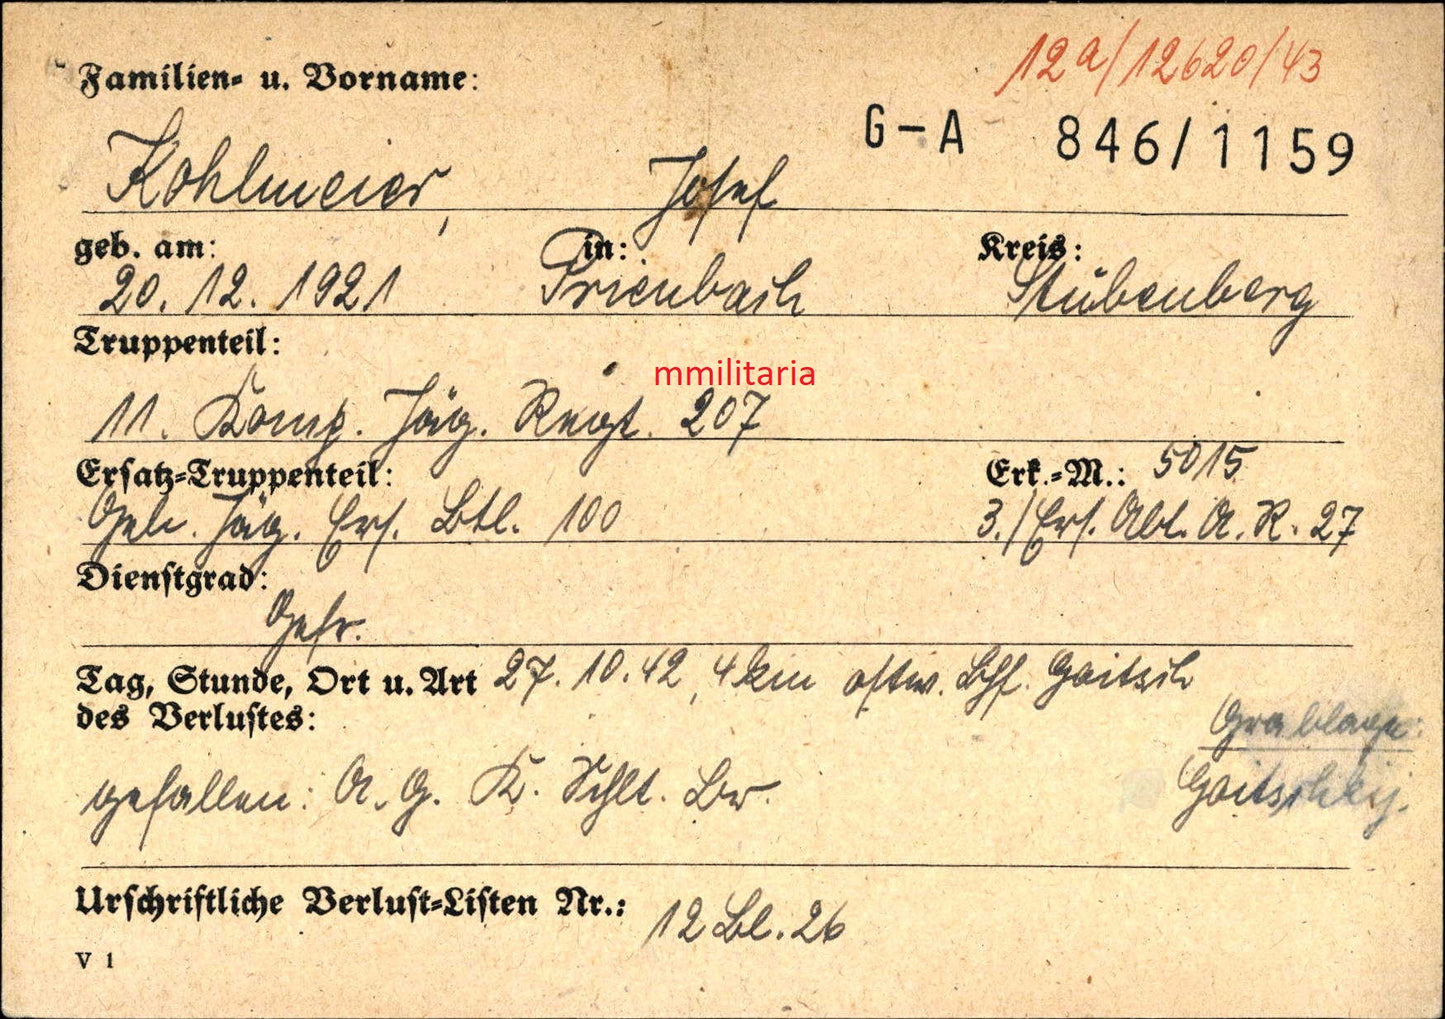 12a/12620/43
Familien- u. Vorname:
G-A 846/1159
Kohlmeier, Josef
geb. am: in: Kreis:
20. 12. 1921 Prienbach Stubenberg
Truppenteil:
mmilitaria
11. Komp. Jäg. Regt. 207
Ersatz-Truppenteil: Erk.-M.: 5015
Geb. Jäg. Ers. Btl. 100 3./Ers. Abt. A. R. 27
Dienstgrad:
Gefr.
Tag, Stunde, Ort u. Art 27. 10. 42, 4 km ostw. Bhf. Goitzih
des Verlustes:
Grablage:
gefallen: A. G. K. Schlt. Br.
Urschriftliche Verlust-Listen Nr.: 12 Bl. 26
V 1